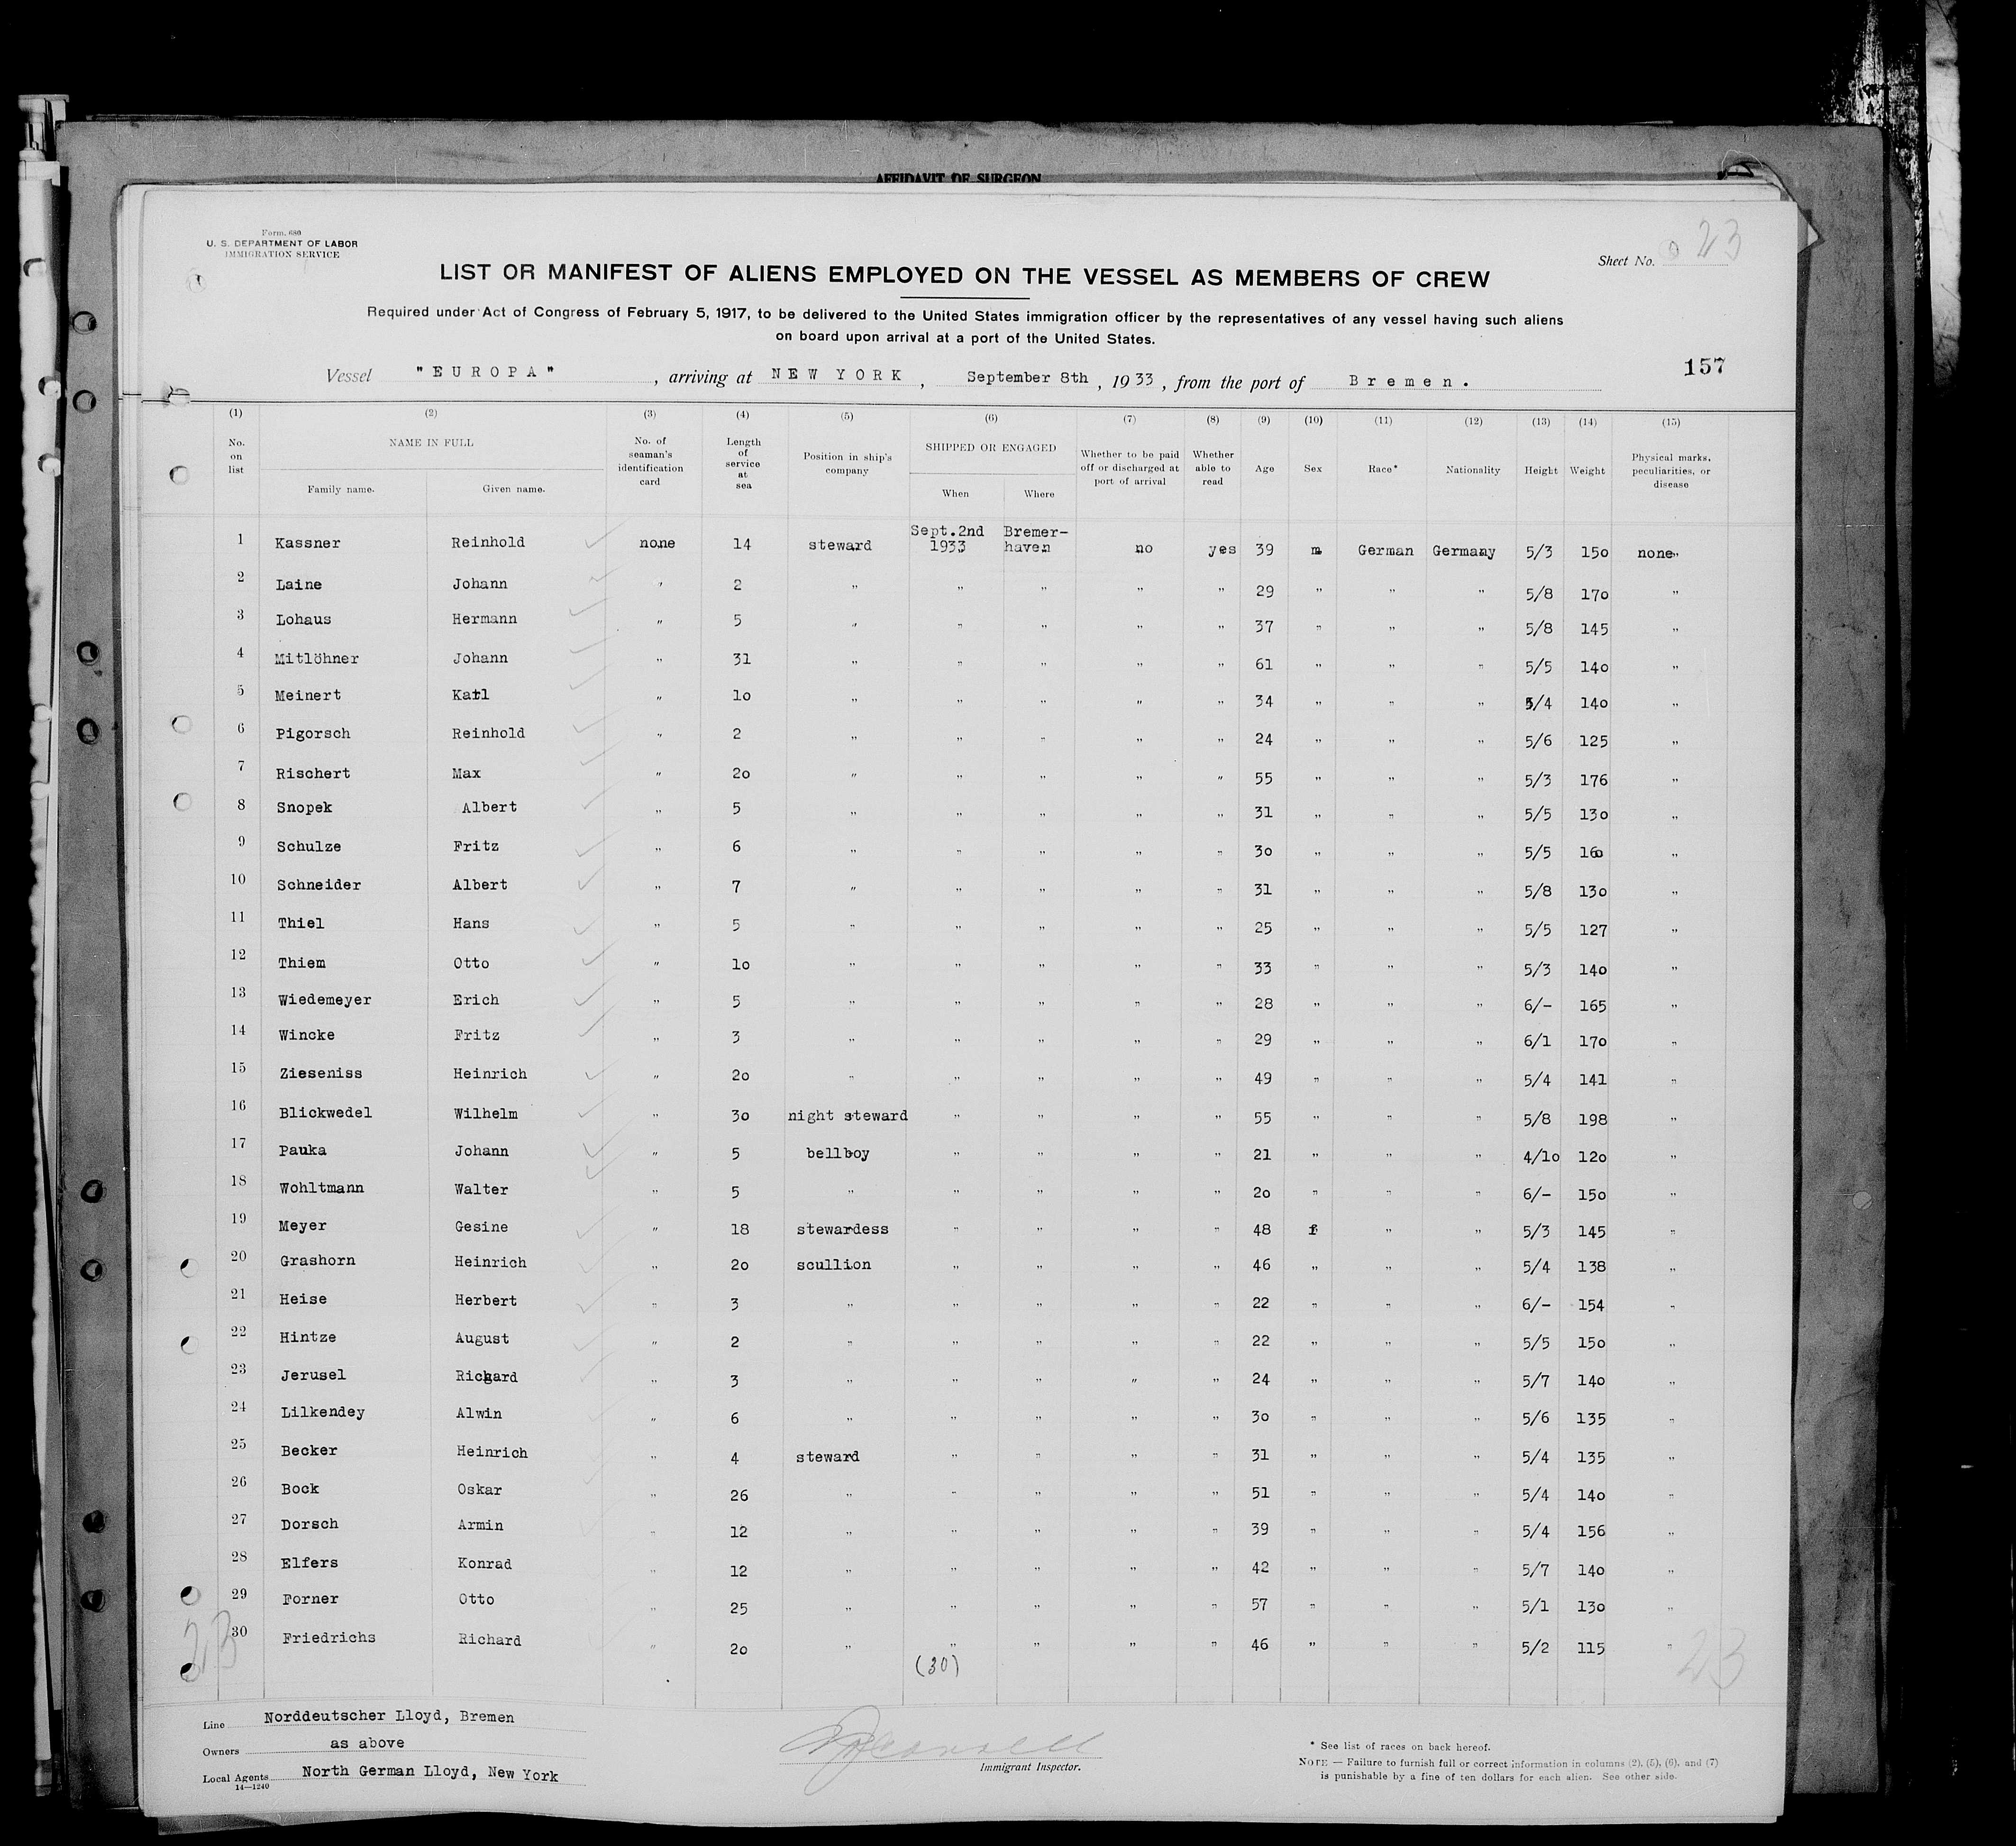 AFFIDAVIT OF SURGEON
Form 680
U. S. DEPARTMENT OF LABOR
IMMIGRATION SERVICE
Sheet No. 23
LIST OR MANIFEST OF ALIENS EMPLOYED ON THE VESSEL AS MEMBERS OF CREW
Required under Act of Congress of February 5, 1917, to be delivered to the United States immigration officer by the representatives of any vessel having such aliens
on board upon arrival at a port of the United States.
157
Vessel "EUROPA" , arriving at NEW YORK , September 8th , 1933 , from the port of Bremen.
(1) (2) (3) (4) (5) (6) (7) (8) (9) (10) (11) (12) (13) (14) (15)
No. on list NAME IN FULL Family name. Given name. No. of seaman's identification card Length of service at sea Position in ship's company SHIPPED OR ENGAGED When Where Whether to be paid off or discharged at port of arrival Whether able to read Age Sex Race* Nationality Height Weight Physical marks, peculiarities, or disease
1 Kassner Reinhold none 14 steward Sept.2nd 1933 Bremer-haven no yes 39 m German Germany 5/3 150 none
2 Laine Johann " 2 " " " " " 29 " " " 5/8 170 "
3 Lohaus Hermann " 5 " " " " " 37 " " " 5/8 145 "
4 Mitlöhner Johann " 31 " " " " " 61 " " " 5/5 140 "
5 Meinert Karl " 10 " " " " " 34 " " " 5/4 140 "
6 Pigorsch Reinhold " 2 " " " " " 24 " " " 5/6 125 "
7 Rischert Max " 20 " " " " " 55 " " " 5/3 176 "
8 Snopek Albert " 5 " " " " " 31 " " " 5/5 130 "
9 Schulze Fritz " 6 " " " " " 30 " " " 5/5 160 "
10 Schneider Albert " 7 " " " " " 31 " " " 5/8 130 "
11 Thiel Hans " 5 " " " " " 25 " " " 5/5 127 "
12 Thiem Otto " 10 " " " " " 33 " " " 5/3 140 "
13 Wiedemeyer Erich " 5 " " " " " 28 " " " 6/- 165 "
14 Wincke Fritz " 3 " " " " " 29 " " " 6/1 170 "
15 Zieseniss Heinrich " 20 " " " " " 49 " " " 5/4 141 "
16 Blickwedel Wilhelm " 30 night steward " " " " 55 " " " 5/8 198 "
17 Pauka Johann " 5 bellboy " " " " 21 " " " 4/10 120 "
18 Wohltmann Walter " 5 " " " " " 20 " " " 6/- 150 "
19 Meyer Gesine " 18 stewardess " " " " 48 f " " 5/3 145 "
20 Grashorn Heinrich " 20 scullion " " " " 46 " " " 5/4 138 "
21 Heise Herbert " 3 " " " " " 22 " " " 6/- 154 "
22 Hintze August " 2 " " " " " 22 " " " 5/5 150 "
23 Jerusel Richard " 3 " " " " " 24 " " " 5/7 140 "
24 Lilkendey Alwin " 6 " " " " " 30 " " " 5/6 135 "
25 Becker Heinrich " 4 steward " " " " 31 " " " 5/4 135 "
26 Bock Oskar " 26 " " " " " 51 " " " 5/4 140 "
27 Dorsch Armin " 12 " " " " " 39 " " " 5/4 156 "
28 Elfers Konrad " 12 " " " " " 42 " " " 5/7 140 "
29 Forner Otto " 25 " " " " " 57 " " " 5/1 130 "
30 Friedrichs Richard " 20 " " " " " 46 " " " 5/2 115 "
23 (30) 23
Line Norddeutscher Lloyd, Bremen
Owners as above
Local Agents North German Lloyd, New York
14—1240
Immigrant Inspector.
* See list of races on back hereof.
NOTE — Failure to furnish full or correct information in columns (2), (5), (6), and (7)
is punishable by a fine of ten dollars for each alien. See other side.